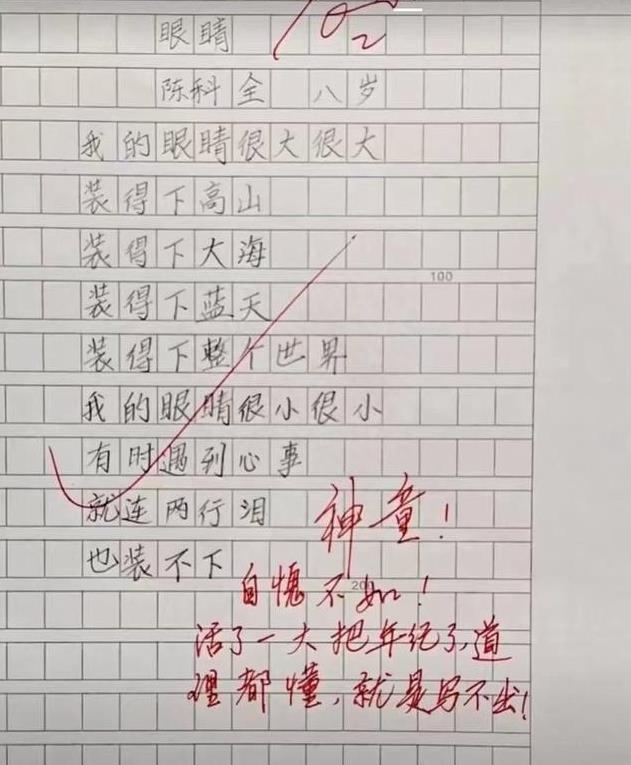 眼睛
陈科全 八岁
我的眼睛很大很大
装得下高山
装得下大海
100
装得下蓝天
装得下整个世界
我的眼睛很小很小
有时遇到心事
就连两行泪
也装不下
神童!
自愧不如!
200
活了一大把年纪了,道
理都懂,就是写不出!